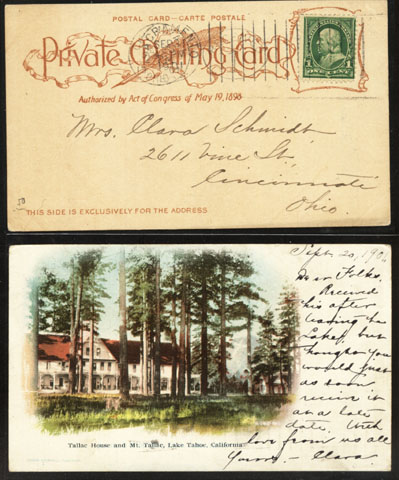 POSTAL CARD—CARTE POSTALE
Private Mailing Card
Authorized by Act of Congress of May 19, 1898
ONE CENT
Mrs. Clara Schmidt
2611 Vine St.
Cincinnati
Ohio.
THIS SIDE IS EXCLUSIVELY FOR THE ADDRESS.
Sept. 20, 190
Dear Folks.
Received
this after
leaving the
Lake, but
thought you
would just
as soon
receive it
at a late
date. With
love from us all
Yours — Clara
Tallac House and Mt. Tallac, Lake Tahoe, California